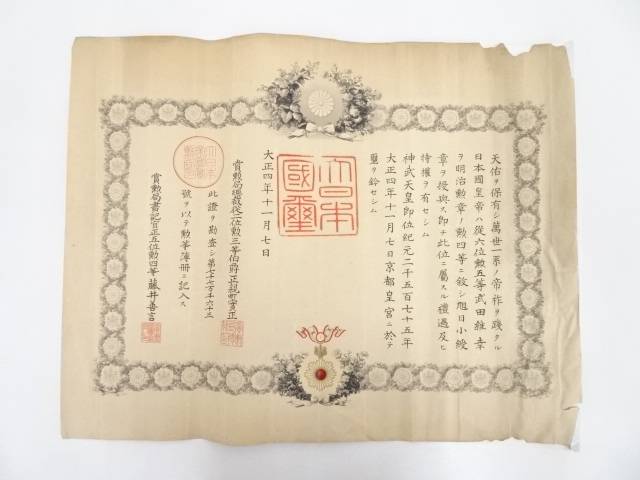 天佑ヲ保有シ萬世一系ノ帝祚ヲ踐タル
日本國皇帝ハ從六位勲五等武田維幸
ヲ明治勲章ノ勲四等ニ敘シ旭日小綬
章ヲ授與ス即チ此位ニ屬スル禮遇及ヒ
特權ヲ有セシム
神武天皇即位紀元二千五百七十五年
大正四年十一月七日京都皇宮ニ於テ
璽ヲ鈐セシム
大日本
國璽
大正四年十一月七日
賞勲局總裁從二位勲三等伯爵正親町實正
此證ヲ勘査シ第七万七千六十三
號ヲ以テ勲等簿冊ニ記入ス
賞勲局書記官正五位勲四等藤井善言